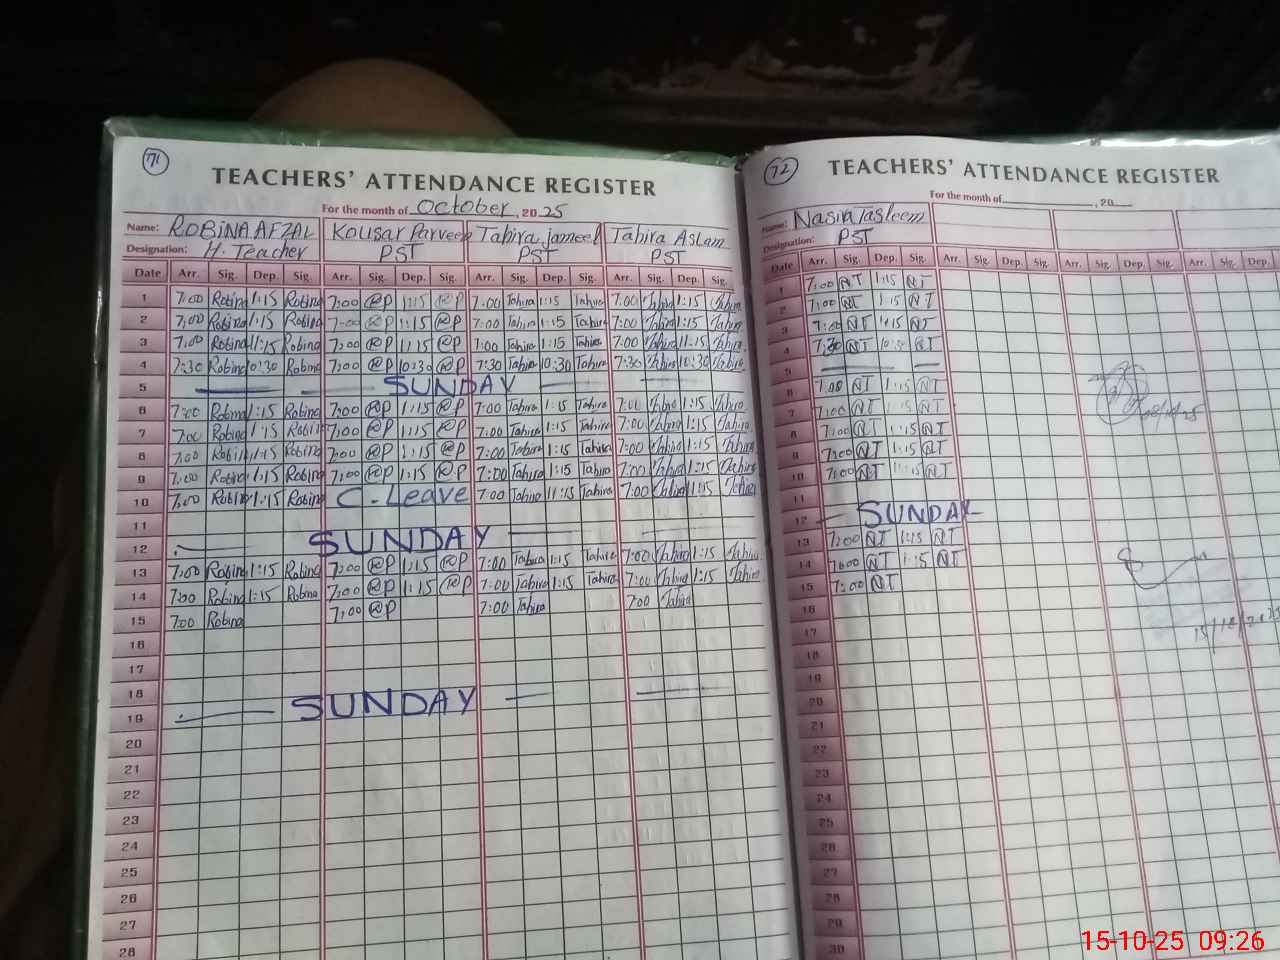 71
TEACHERS' ATTENDANCE REGISTER
For the month of October, 2025
Name: ROBINA AFZAL Kousar Parveen Tahira jameel Tahira Aslam
Designation: H. Teacher PST PST PST
Date Arr. Sig. Dep. Sig. Arr. Sig. Dep. Sig. Arr. Sig. Dep. Sig. Arr. Sig. Dep. Sig.
1 7:00 Robina 1:15 Robina 7:00 KP 1:15 KP 7:00 Tahira 1:15 Tahira 7:00 Tahira 1:15 Tahira
2 7:00 Robina 1:15 Robina 7:00 KP 1:15 KP 7:00 Tahira 1:15 Tahira 7:00 Tahira 1:15 Tahira
3 7:00 Robina 1:15 Robina 7:00 KP 1:15 KP 7:00 Tahira 1:15 Tahira 7:00 Tahira 1:15 Tahira
4 7:30 Robina 10:30 Robina 7:00 KP 10:30 KP 7:30 Tahira 10:30 Tahira 7:30 Tahira 10:30 Tahira
5 SUNDAY
6 7:00 Robina 1:15 Robina 7:00 KP 1:15 KP 7:00 Tahira 1:15 Tahira 7:00 Tahira 1:15 Tahira
7 7:00 Robina 1:15 Robina 7:00 KP 1:15 KP 7:00 Tahira 1:15 Tahira 7:00 Tahira 1:15 Tahira
8 7:00 Robina 1:15 Robina 7:00 KP 1:15 KP 7:00 Tahira 1:15 Tahira 7:00 Tahira 1:15 Tahira
9 7:00 Robina 1:15 Robina 7:00 KP 1:15 KP 7:00 Tahira 1:15 Tahira 7:00 Tahira 1:15 Tahira
10 7:00 Robina 1:15 Robina C. Leave 7:00 Tahira 11:15 Tahira 7:00 Tahira 1:15 Tahira
11
12 SUNDAY
13 7:00 Robina 1:15 Robina 7:00 KP 1:15 KP 7:00 Tahira 1:15 Tahira 7:00 Tahira 1:15 Tahira
14 7:00 Robina 1:15 Robina 7:00 KP 1:15 KP 7:00 Tahira 1:15 Tahira 7:00 Tahira 1:15 Tahira
15 7:00 Robina 7:00 KP 7:00 Tahira 7:00 Tahira
16
17
18
19 SUNDAY
20
21
22
23
24
25
26
27
28
72
TEACHERS' ATTENDANCE REGISTER
For the month of , 20
Name: Nasira Tasleem
Designation: PST
Date Arr. Sig. Dep. Sig. Arr. Sig. Dep. Sig. Arr. Sig. Dep. Sig. Arr. Sig. Dep.
1 7:00 NT 1:15 NT
2 7:00 NT 1:15 NT
3 7:00 NT 1:15 NT
4 7:30 NT 10:30 NT
5
6 7:00 NT 1:15 NT
7 7:00 NT 1:15 NT
8 7:00 NT 1:15 NT
9 7:00 NT 1:15 NT
10 7:00 NT 11:15 NT
11
12 SUNDAY
13 7:00 NT 1:15 NT
14 7:00 NT 1:15 NT
15 7:00 NT
16
17
18
19
20
21
22
23
24
25
26
27
28
29
30
15-10-25 09:26